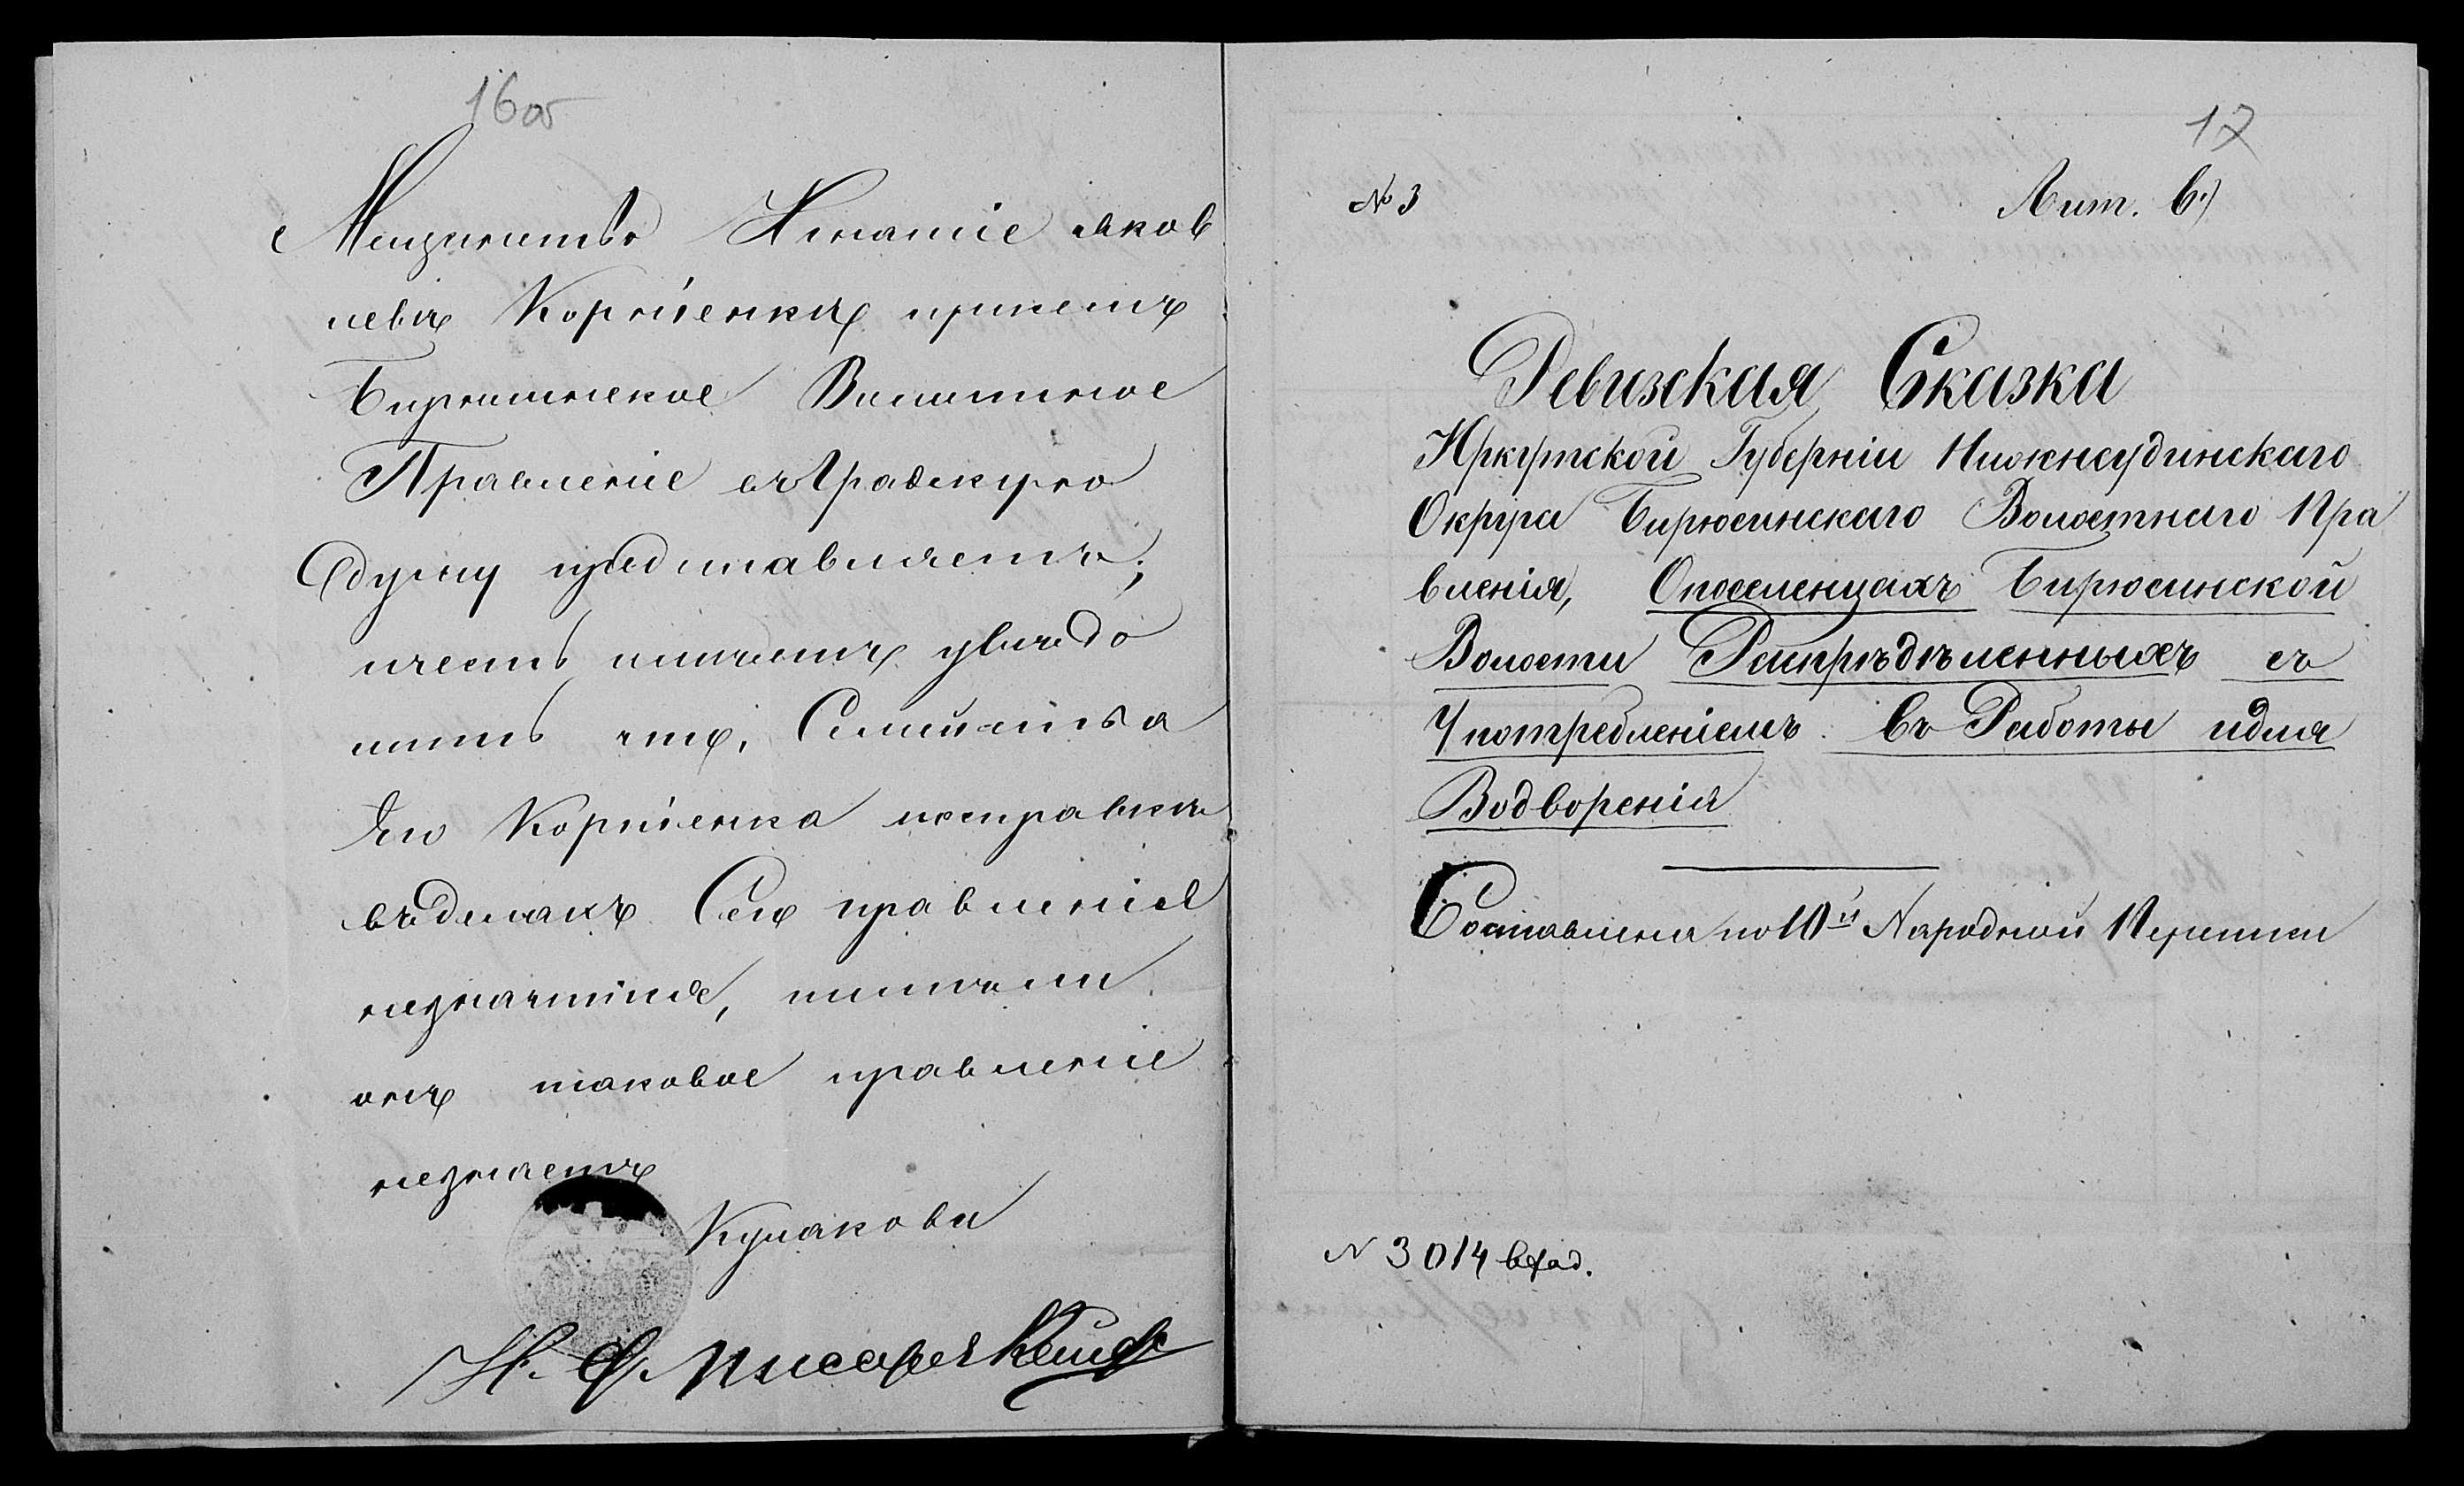 16об
Игнатіе Яков
левъ Корніенкъ
Бирюсинское Волостное
Правленіе въ Градскую
Думу представляетъ;
честь имѣетъ увѣдо
мить что, Семейства
Его Корніенка поправка
вѣдѣлахъ Сего правленія
незначится,
онъ таковое правленіе
незнаетъ
Кулаковъ
17
№ 3
Лит. в.)
Ревизская Сказка
Иркутской Губерніи Нижнеудинскаго
Округа Бирюсинскаго Волостнаго Пра
вленія, Опоселенцахъ Бирюсинской
Волости Распрѣдѣленныхъ съ
Употребленіемъ въ Работы идля
Водворенія
Составлена по 10й Народной Переписи
N 3014